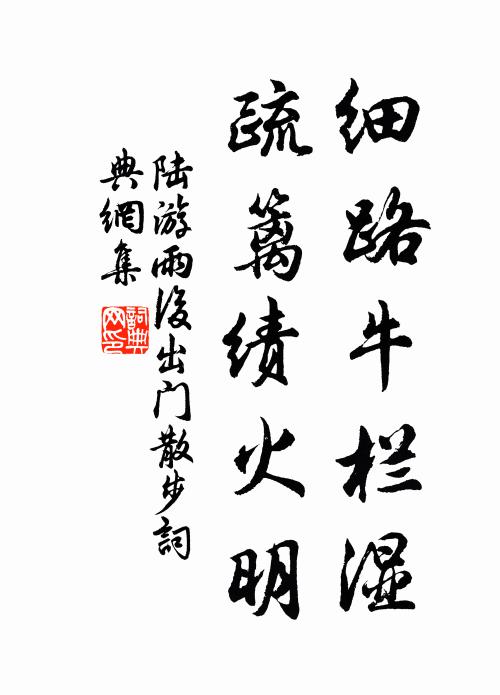 细路牛栏湿
疏篱绩火明
陆游雨後出门散步词
典網集
詞典
网印